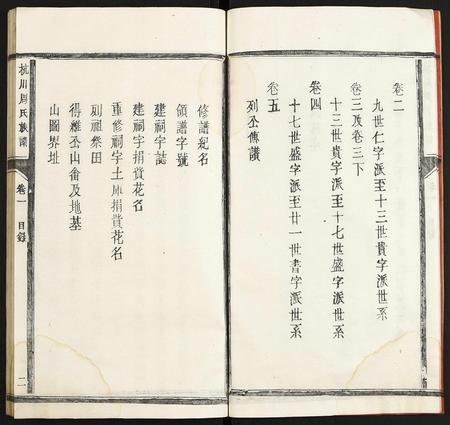 卷二
九世仁字派至十三世貴字派世系
卷三及卷三下
十三世貴字派至十七世盛字派世系
卷四
十七世盛字派至廿一世書字派世系
卷五
列公傳讚
修譜紀名
領譜字號
建祠宇誌
建祠宇捐貲花名
重修祠宇土庫捐貲花名
列祖祭田
得離公山畬及地基
山圖界址
杭川周氏族譜
卷一
目錄
二